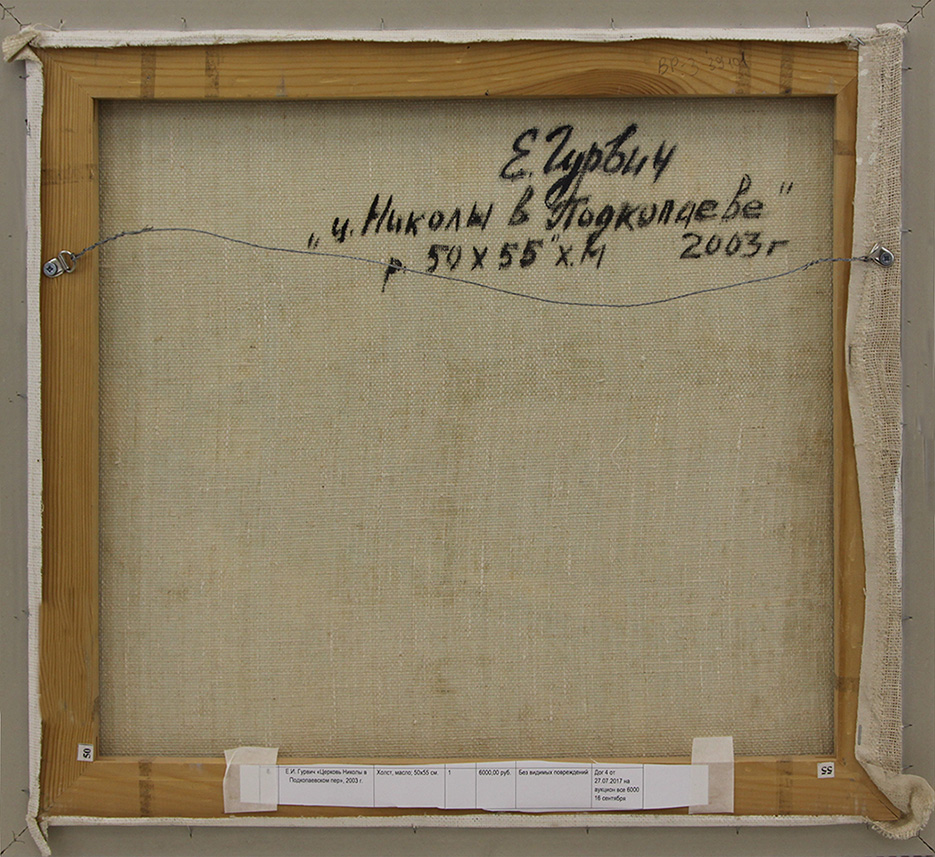 Е. Гурвич
„ц. Николы в Подкопаеве"
р. 50 х 55" х.м 2003г
50
55
8. Е.И. Гурвич «Церковь Николы в Подкопаевском пер», 2003 г. Холст, масло; 50х55 см. 1 6000,00 руб. Без видимых повреждений Дог 4 от
27.07.2017 на
аукцион все 6000
16 сентября